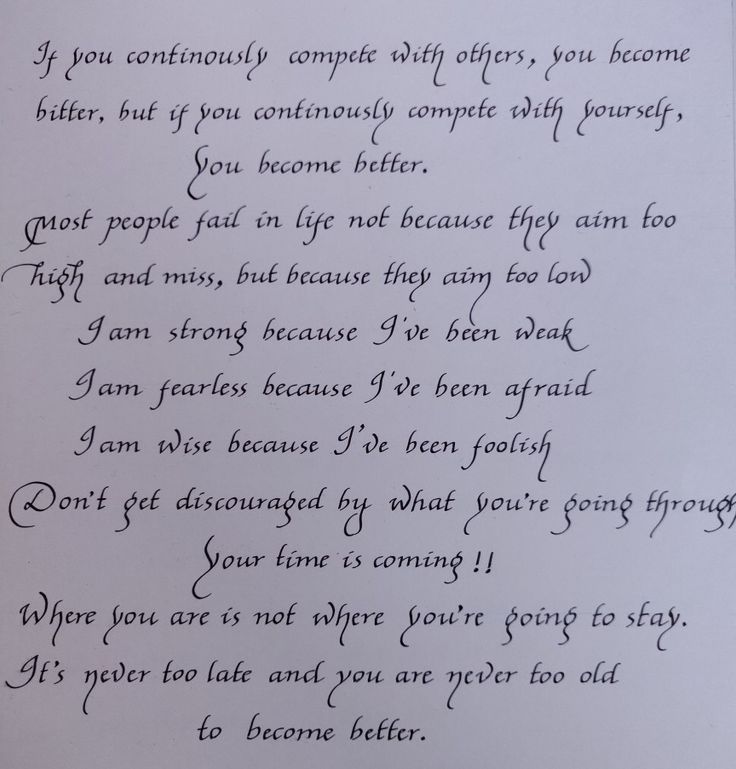 If you continously compete with others, you become
bitter, but if you continously compete with yourself,
You become better.
Most people fail in life not because they aim too
high and miss, but because they aim too low
I am strong because I've been weak
I am fearless because I've been afraid
I am wise because I've been foolish
Don't get discouraged by what you're going through
Your time is coming!!
Where you are is not where you're going to stay.
It's never too late and you are never too old
to become better.